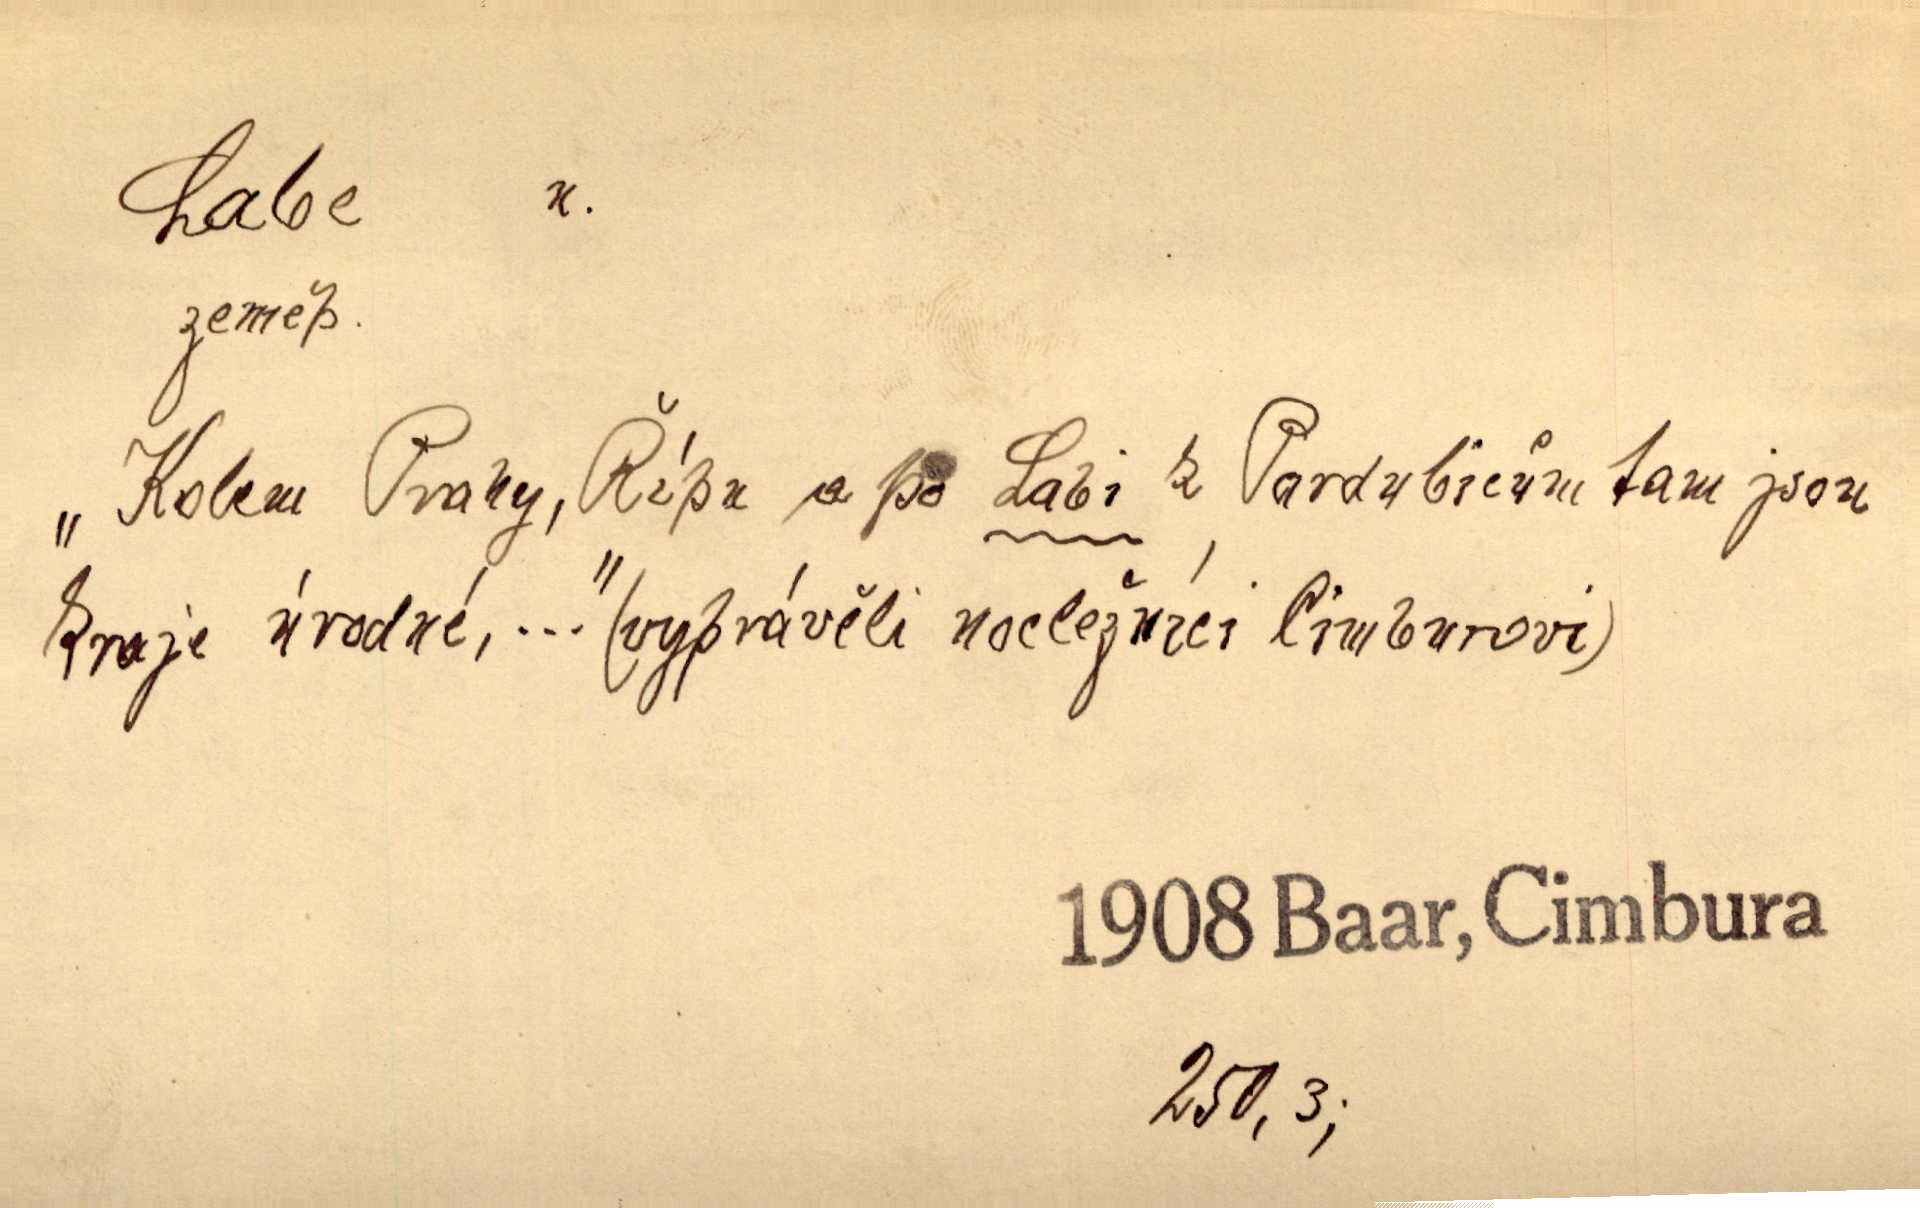 Labe n.
zeměp.
„Kolem Prahy, Řípu a po Labi k Pardubicům tam jsou
kraje úrodné, ..." (vyprávěli nocležníci Cimburovi)
1908 Baar, Cimbura
250, 3;